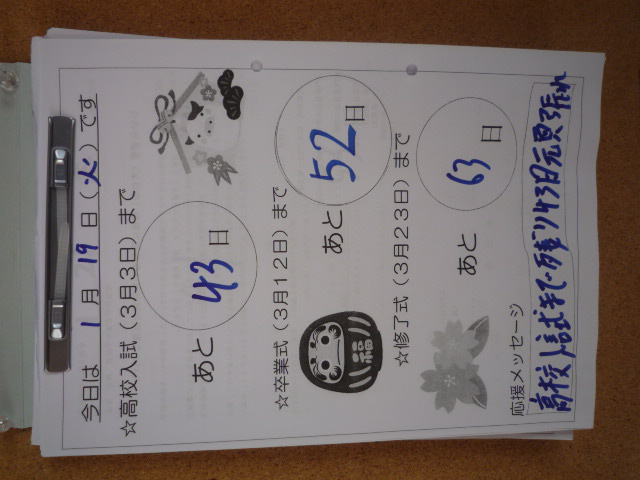 今日は 1 月 19 日（火）です
☆高校入試（3月3日）まで
あと 43 日
☆卒業式（3月12日）まで
福
あと 52 日
☆修了式（3月23日）まで
あと 63 日
応援メッセージ
高校入試まで残り43日元気張れ